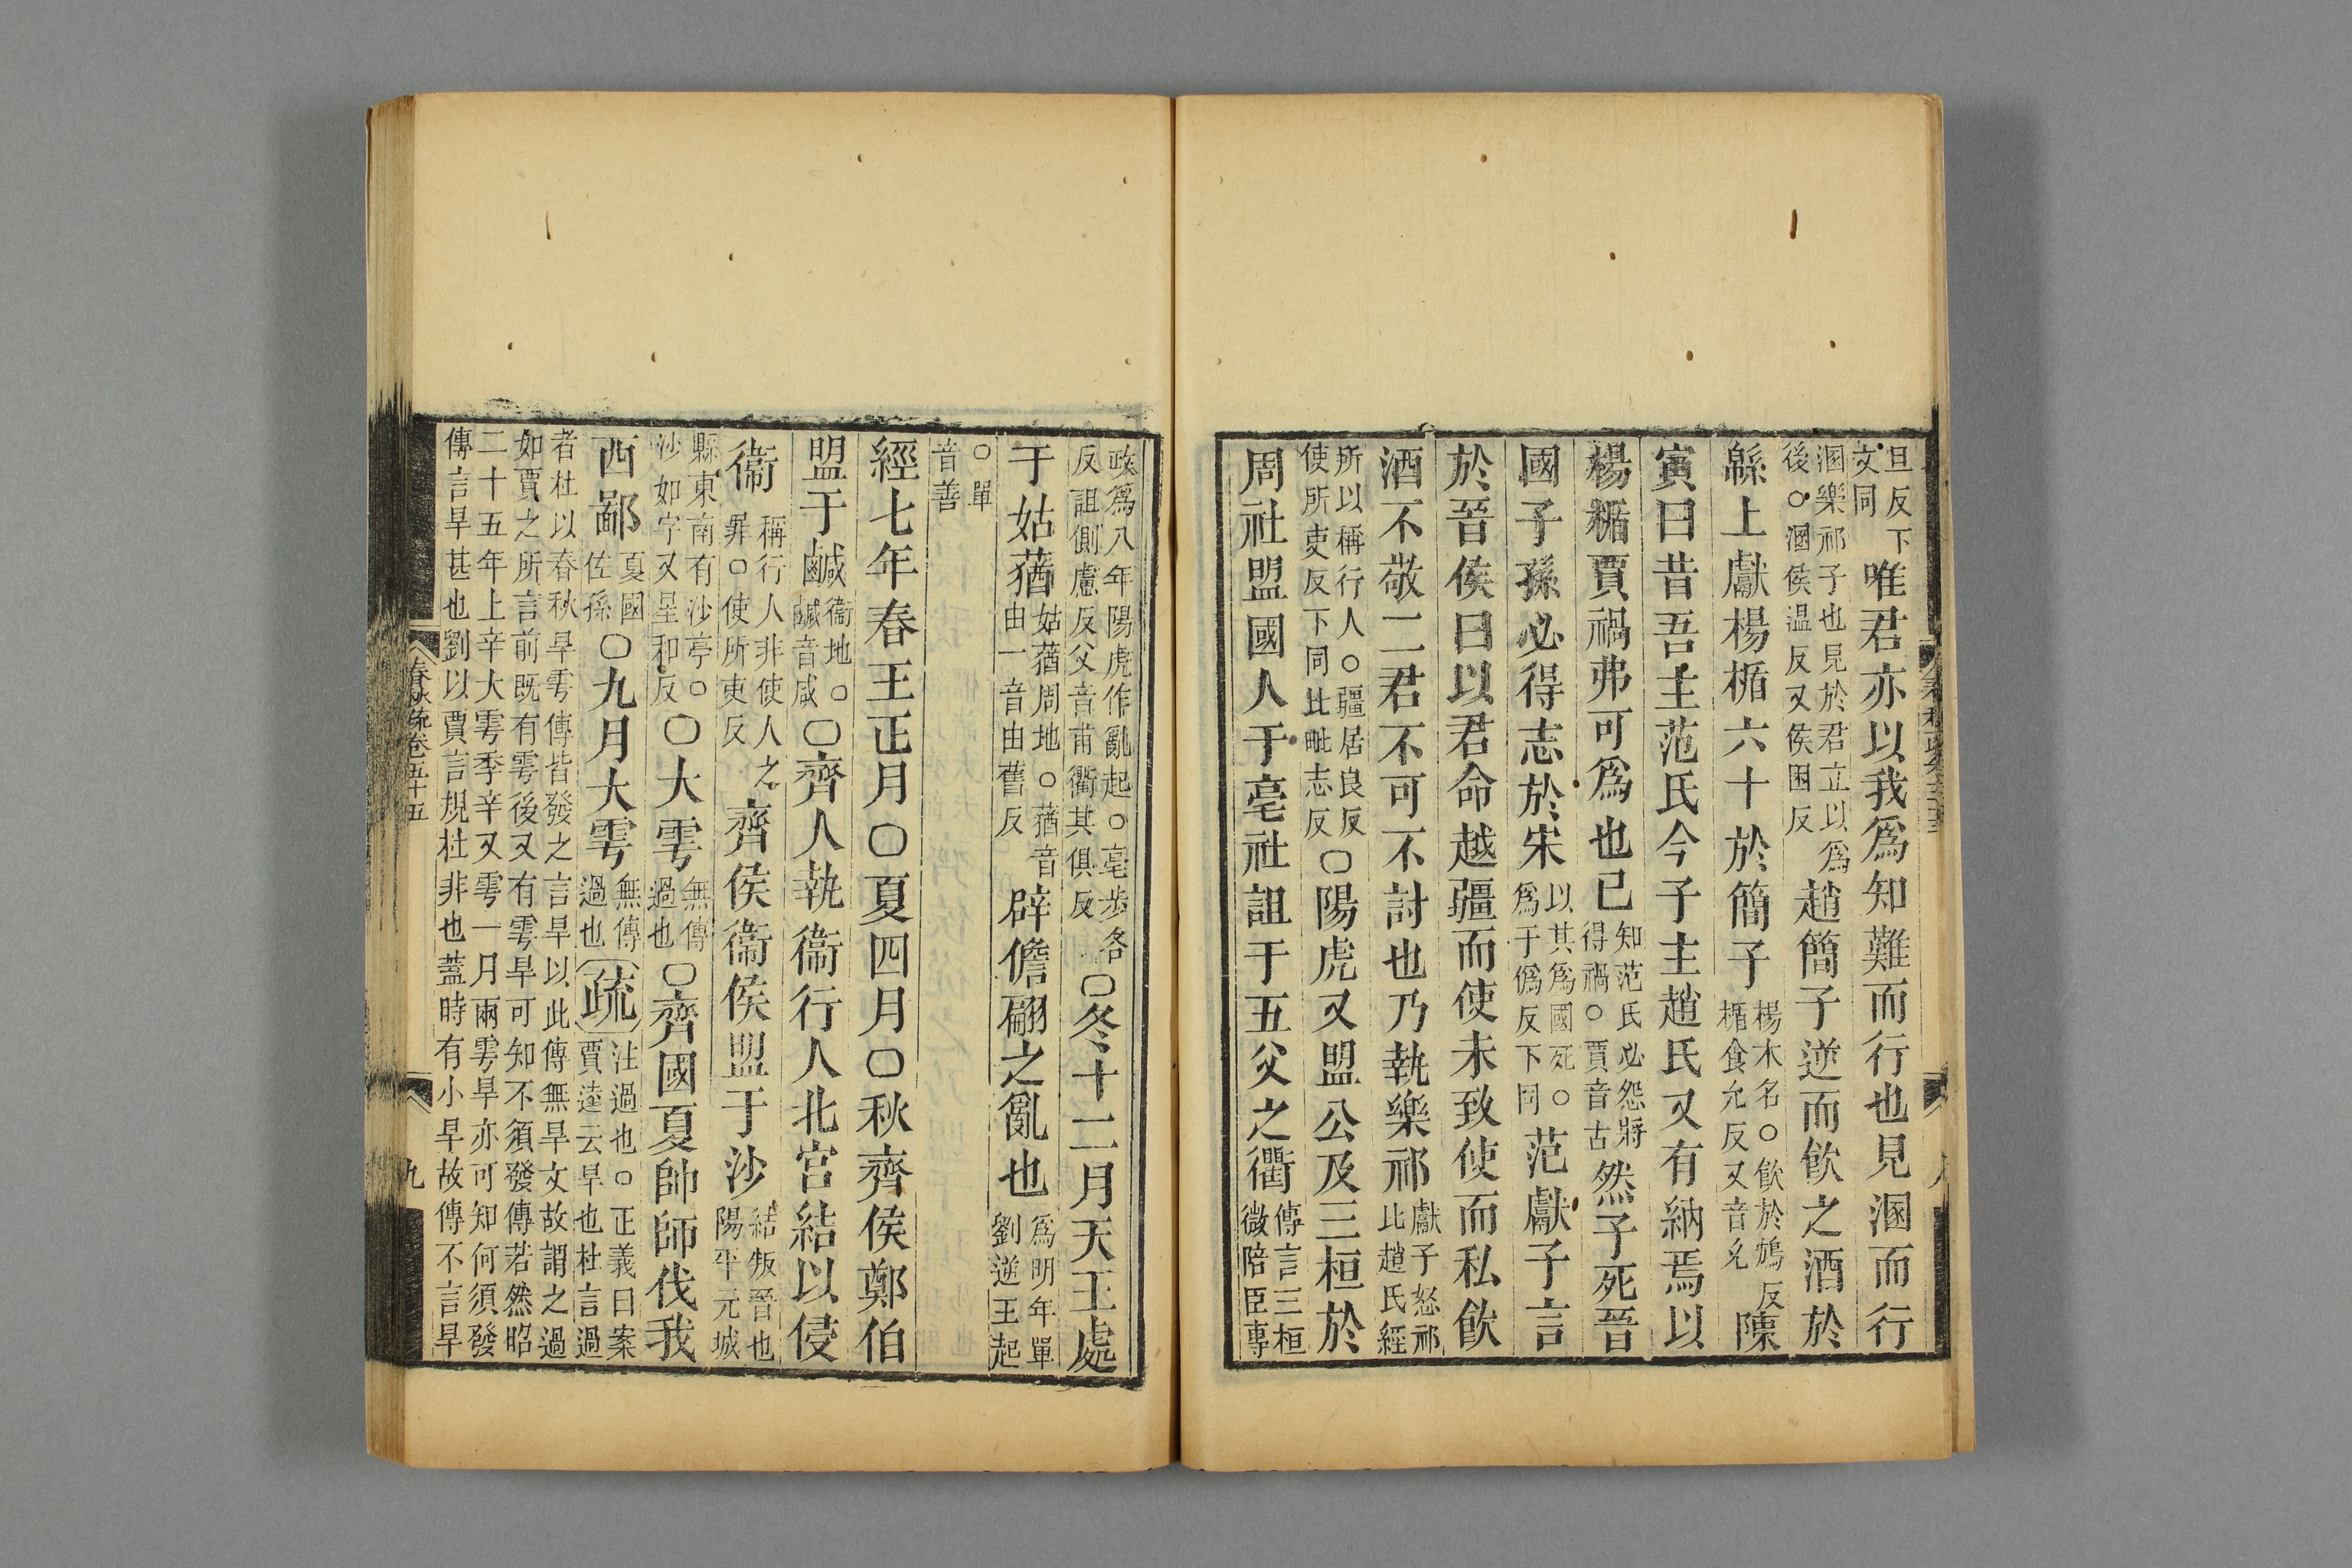 旦反下文同唯君亦以我爲知難而行也見溷而行
溷樂祁子也見於君立以爲後○溷侯温反又侯困反趙簡子逆而飲之酒於
緜上獻楊楯六十於簡子楊木名○飲於鴆反楯食允反又音允陳
寅曰昔吾主范氏今子主趙氏又有納焉以
楊楯賈禍弗可爲也已知范氏必怨將得禍○賈音古然子死晉
國子孫必得志於宋以其爲國死○爲于僞反下同范獻子言
於晉侯曰以君命越疆而使未致使而私飲
酒不敬二君不可不討也乃執樂祁獻子怒祁比趙氏經
所以稱行人○疆居良反使所吏反下同比毗志反○陽虎又盟公及三桓於
周社盟國人于亳社詛于五父之衢傳言三桓微陪臣專
政爲八年陽虎作亂起○亳步各反詛側慮反父音甫衢其俱反○冬十二月天王處
于姑蕕姑蕕周地○蕕音由一音由舊反辟儋翩之亂也爲明年單劉逆王起
○單音善
經七年春王正月○夏四月○秋齊侯鄭伯
盟于鹹衞地○鹹音咸○齊人執衞行人北宮結以侵
衞稱行人非使人之罪○使所吏反齊侯衞侯盟于沙結叛晉也陽平元城
縣東南有沙亭○沙如字又星和反○大雩無傳過也○齊國夏帥師伐我
西鄙夏國佐孫○九月大雩無傳過也疏注過也○正義曰案賈逵云旱也杜言過
者杜以春秋旱雩傳皆發之言旱以此傳無旱文故謂之過
如賈之所言前既有雩後又有雩旱可知不須發傳若然昭
二十五年上辛大雩季辛又雩一月兩雩旱亦可知何須發
傳言旱甚也劉以賈言規杜非也蓋時有小旱故傳不言旱
春秋疏卷五十五
九